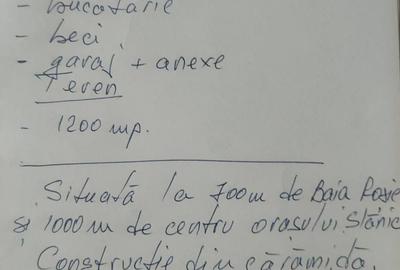 - bucatarie
- beci
- garaj + anexe
Teren
- 1200 mp.
Situată la 700m de Baia Roșie
și 1000m de centru orasului Slănic
Construcție din cărămidă.